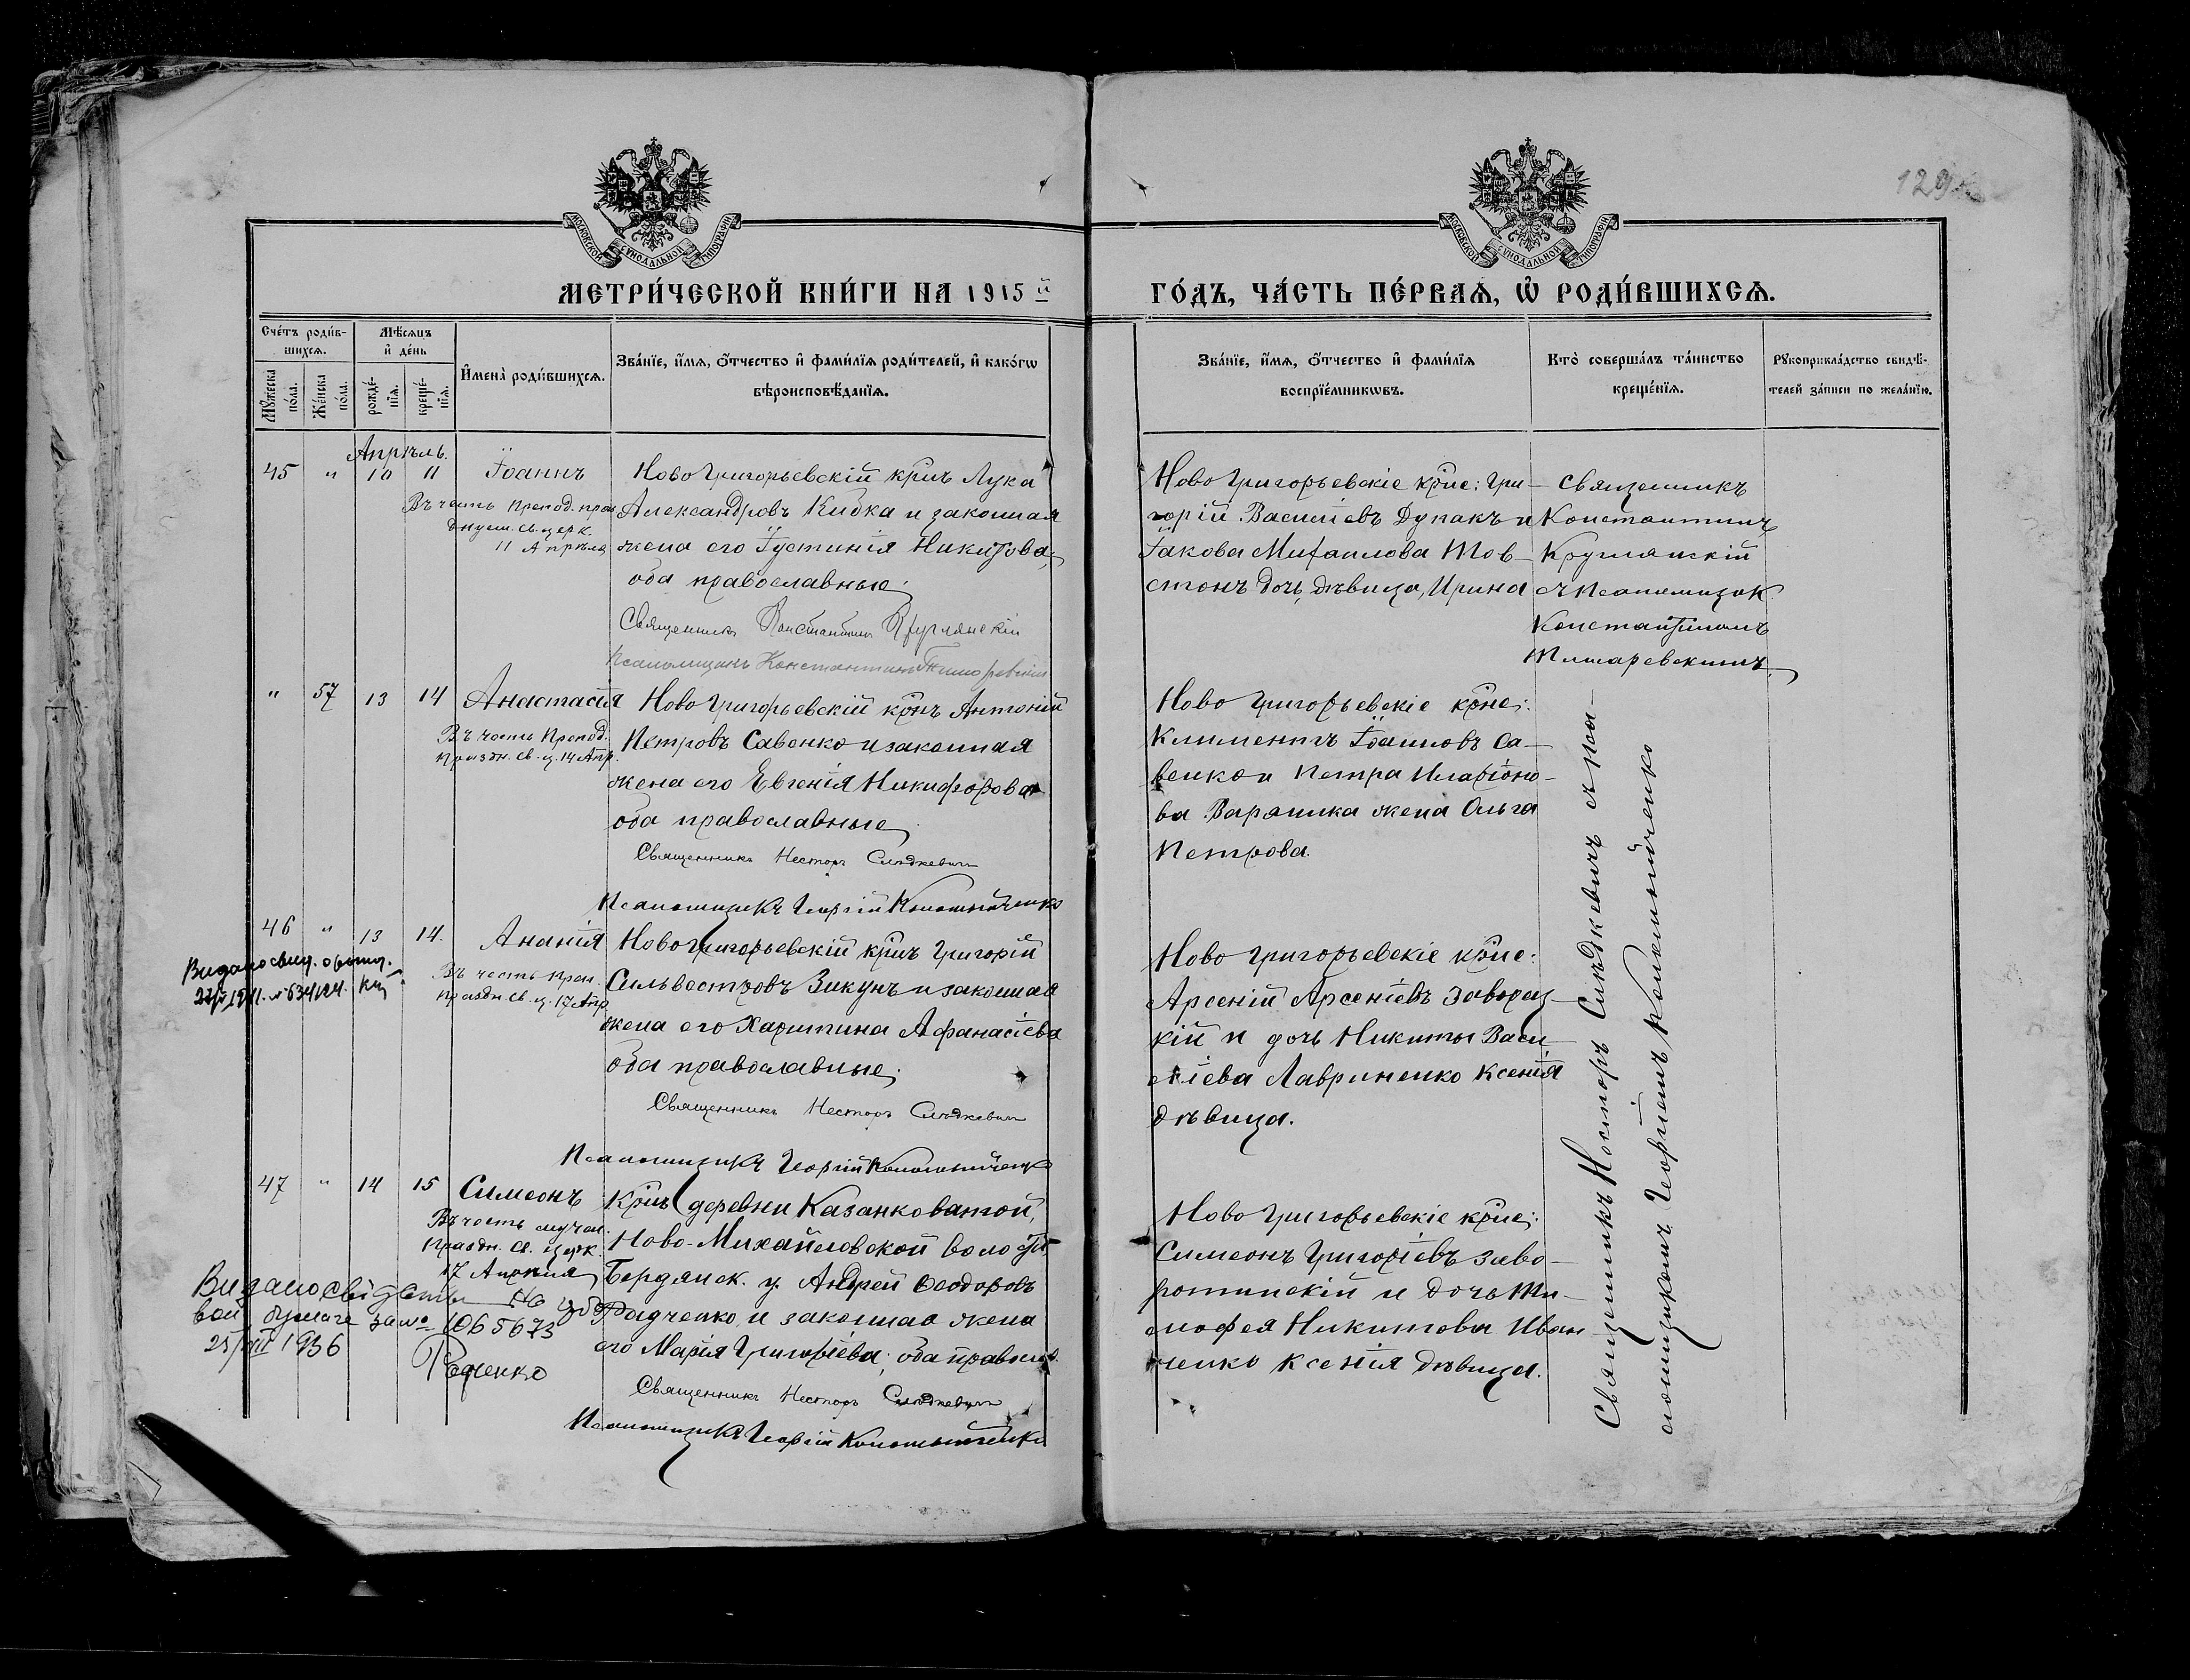 129
МОСКОВСКОЙ СУНОДАЛЬНОЙ ТИПОГРАФІИ
МОСКОВСКОЙ СУНОДАЛЬНОЙ ТИПОГРАФІИ
МЕТРИ́ЧЕСКОЙ КНИ́ГИ НА 1915 й
ГО́ДЪ, ЧА́СТЬ ПЕ́РВАѦ, Ѡ҆ РОДИ́ВШИХСѦ.
Сче́тъ роди́в-
шихсѧ.
Мѣ́сѧцъ
и҆ де́нь
Мꙋ́жеска по́ла.
Же́нска по́ла.
рожде́-
нїѧ.
креще́-
нїѧ.
И҆мена̀ роди́вшихсѧ.
Зва́нїе, и҆́мѧ, ѻ҆́тчество и҆ фами́лїѧ роди́телей, и҆ како́гѡ
вѣроисповѣ́данїѧ.
Зва́нїе, и҆́мѧ, ѻ҆́тчество и҆ фами́лїѧ
воспрїе́мникѡвъ.
Кто̀ соверша́лъ та́инство
креще́нїѧ.
Рꙋкоприкла́дство свидѣ́-
телей за́писи по жела́нїю.
Апрѣль.
45 " 10 11 Іоаннъ
Въ честь препод. праз
днуем. св. церк.
11 Апрѣля
Ново Григорьевскій крнъ Лука
Александровъ Кибка и законная
жена его Іустинія Никитова,
оба православные.
Священникъ Константинъ Круглянскій
Псаломщикъ Константинъ
Ново Григорьевскіе крне: Гри-
горій Василіевъ Дупакъ и
Іакова Михаилова Тов-
стонъ дочь, дѣвица, Ирина
Священникъ
Константинъ
Круглянскій
с псаломщик.
Константиномъ
" 57 13 14 Анастасія
Въ честь Препод.
Праздн. св. ц. 14 Апр.
Ново Григорьевскій крнъ Антоній
Петровъ Савенко и законная
жена его Евгенія Никифорова
оба православные
Священникъ Несторъ Слѣдкевичъ
Псаломщикъ Георгій Коломыйченко
Ново Григорьевскіе крне:
Климентъ Іоанновъ Са-
венко и Петра Иларіоно-
ва Варяника жена Ольга
Петрова.
46 " 13 14. Ананія
Въ честь преп.
Праздн. св. ц. 17 Апр
Ново Григорьевскій крнъ Григорій
Сильвестровъ Зикунъ и законная
жена его Харитина Афанасіева
оба православные.
Священникъ Несторъ Слѣдкевичъ
Псаломщикъ Георгій Коломыйченко
Ново Григорьевскіе крне:
Арсеній Арсеніевъ
кій и дочь Никиты Васи-
ліева Лавриненко Ксенія
дѣвица.
47 " 14 15 Симеонъ
Въ честь мучен.
Праздн. св. церк.
17 Апрѣля
Крнъ деревни Казанковатой,
Ново-Михайловской волости,
Бердянск. у. Андрей Ѳеодоровъ
Радченко и законная жена
его Марія Григоріева; оба правосл.
Священникъ Несторъ Слѣдкевичъ
Псаломщикъ Георгій Коломыйченко
Ново Григорьевскіе крне:
Симеонъ Григоріевъ Заво-
ротинскій и дочь Ти-
мофея Никитова Иван-
ченко Ксенія дѣвица.
Священникъ Несторъ Слѣдкевичъ с пса-
ломщикомъ Георгіемъ Коломыйченко
Видано свід.
за № 065673
25/VII 1936